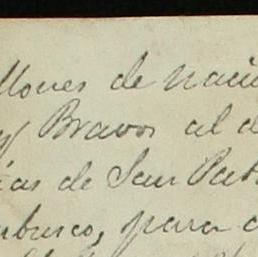 llones de naci
y Bravos al d
ías de San Pat
rubusco, para